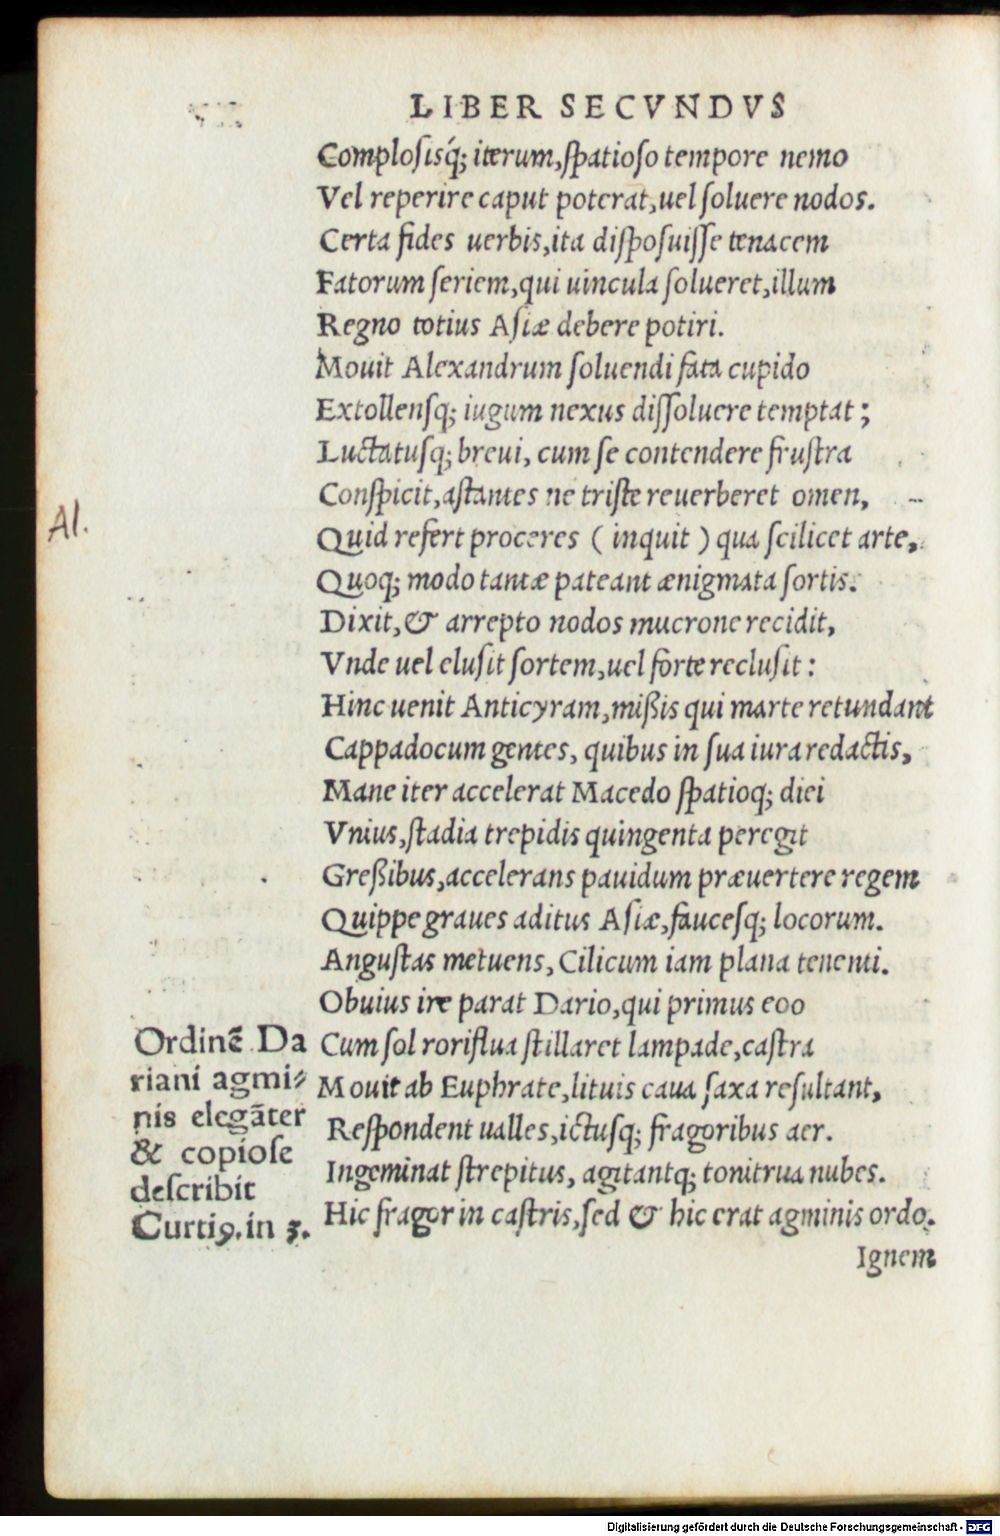 LIBER SECVNDVS
Complosisq́; iterum,ſpatioſo tempore nemo
Vel reperire caput poterat,uel ſoluere nodos.
Certa fides uerbis,ita diſpoſuiſſe tenacem
Fatorum ſeriem,qui uincula ſolueret,illum
Regno totius Aſiæ debere potiri.
Mouit Alexandrum ſoluendi fata cupido
Extollenſq; iugum nexus diſſoluere temptat;
Luctatuſq; breui, cum ſe contendere fruſtra
Conſpicit,aſtantes ne triſte reuerberet omen,
Al.
Quid refert proceres ( inquit ) qua ſcilicet arte,
Quoq; modo tantæ pateant ænigmata ſortis.
Dixit,& arrepto nodos mucrone recidit,
Vnde uel eluſit ſortem,uel forte recluſit:
Hinc uenit Anticyram,mißis qui marte retundant
Cappadocum gentes, quibus in ſua iura redactis,
Mane iter accelerat Macedo ſpatioq; diei
Vnius,ſtadia trepidis quingenta peregit
Greßibus,accelerans pauidum præuertere regem
Quippe graues aditus Aſiæ,fauceſq; locorum.
Anguſtas metuens, Cilicum iam plana tenenti.
Obuius ire parat Dario,qui primus eoo
Cum ſol roriflua ſtillaret lampade,caſtra
Mouit ab Euphrate,lituis caua ſaxa reſultant,
Reſpondent ualles,ictuſq; fragoribus aer.
Ingeminat ſtrepitus, agitantq; tonitrua nubes.
Hic fragor in caſtris,ſed & hic erat agminis ordo.
Ignem
Ordinē Da
riani agmi⸗
nis elegāter
& copioſe
deſcribit
Curtiꝰ. in 3.
Digitalisierung gefördert durch die Deutsche Forschungsgemeinschaft - DFG